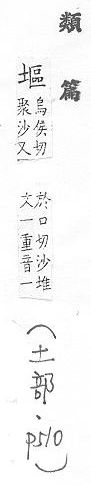 類篇
塸
烏侯切
聚沙又
於口切沙堆
文一重音一
(土部．p510)